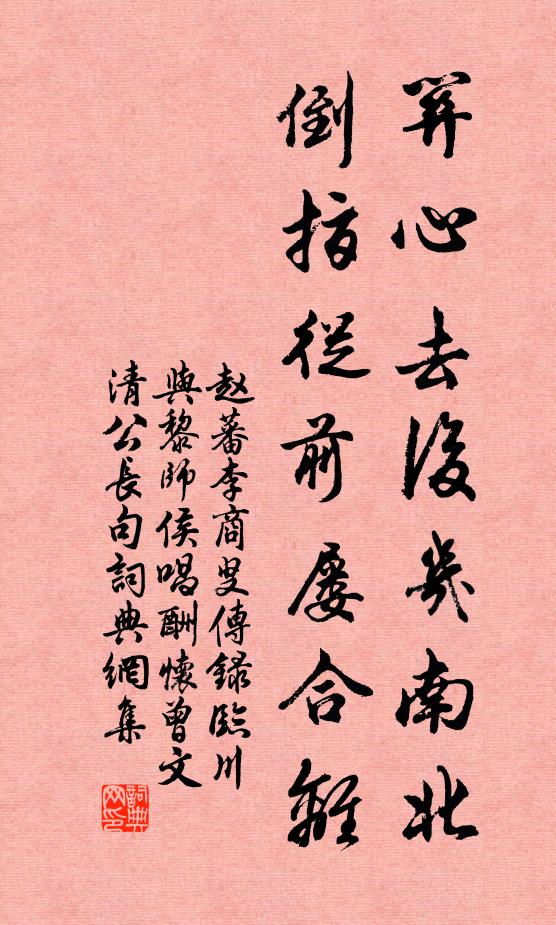 關心去後幾南北
倒指從前屢合離
赵蕃李商叟傳録臨川
與黎師侯唱酬懷曾文
清公長句詞典網集
詞典網印